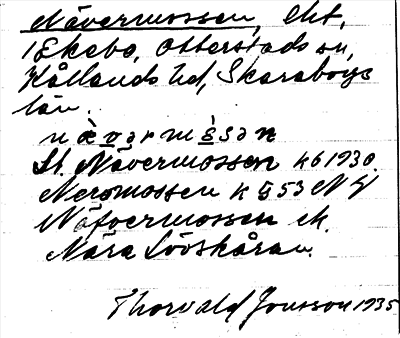 Nävermossen, Cht,
i Ekebo, Otterstads sn,
Kållands hd, Skaraborgs
län.
næ̀vərmɞ̀sən
St. Nävermossen k 6 1930.
Nersmossen k § 53 N
Näfvermossen ek.
Nära Lövskåran.
Thorvald Jonsson 1935